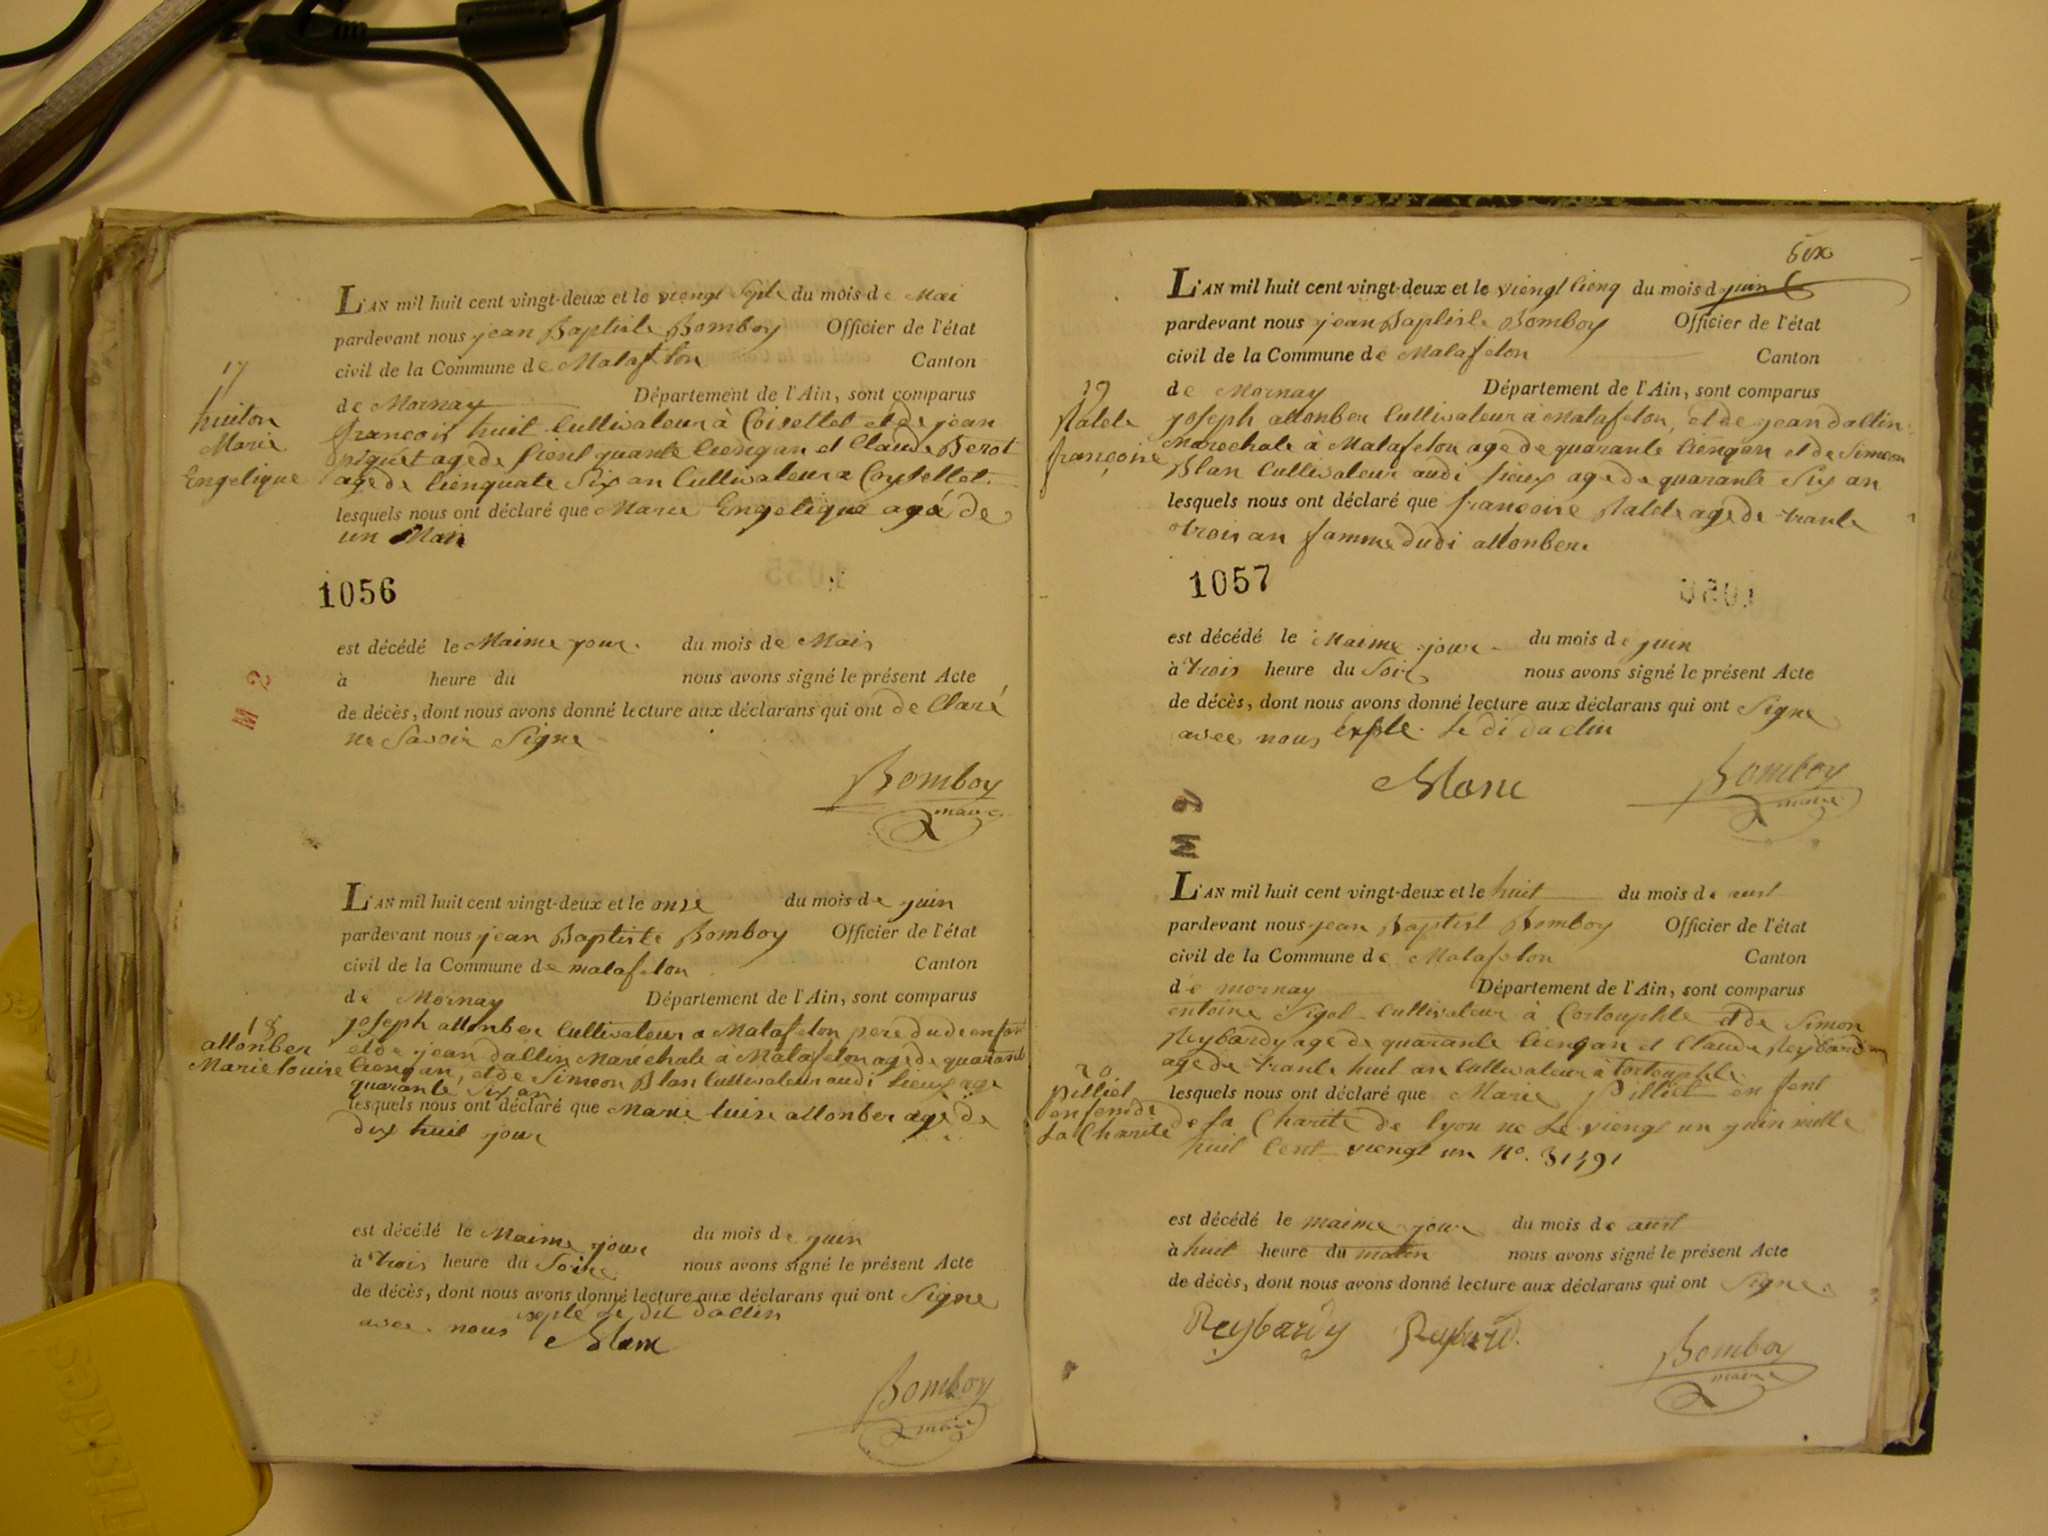 L'AN mil huit cent vingt-deux et le viengt septe du mois de Mai
pardevant nous jean Baptiste Bomboy Officier de l'état
civil de la Commune de Matafelon Canton
de Mornay Département de l'Ain, sont comparus
17
huiton
Marie
Engelique
francois huit Cultivateur à Coisellet et de jean
piquet age de Cienquante Ciengan et Claude Berot
age de Cienquate Six an Cultivateur a Coysellet
lesquels nous ont déclaré que Marie Engelique agé de
un Mois
1056
est décédé le Maime jour du mois de Mais
à heure du nous avons signé le présent Acte
de décès, dont nous avons donné lecture aux déclarans qui ont de Claré
ne Savoir Signe
M 2
Bomboy
maire
L'AN mil huit cent vingt-deux et le onze du mois de juin
pardevant nous jean Baptiste Bomboy Officier de l'état
civil de la Commune de matafelon Canton
de Mornay Département de l'Ain, sont comparus
18
allonber
Marie louise
joseph allonber Cultivateur a Matafelon pere dudi enfan
et de jean dallin Marechale à Matafelon age de quarante
Ciengan, et de Simeon Blan Cultivateur audi Lieux age
quarante Six an
lesquels nous ont déclaré que Marie luise allonber age de
dix huit jour
est décédé le Maime jour du mois de juin
à trois heure du Soire nous avons signé le présent Acte
de décès, dont nous avons donné lecture aux déclarans qui ont Signe
avec nous exple le dit dallin
Blanc
Bomboy
maire
Six
L'AN mil huit cent vingt-deux et le viengt Cienq du mois d juin
pardevant nous jean Baptiste Bomboy Officier de l'état
civil de la Commune de Matafelon Canton
de Mornay Département de l'Ain, sont comparus
19
françoise
joseph allonber Cultivateur a Matafelon, et de jean dallin
Marechale à Matafelon age de quarante Ciengan et de Simeon
Blan Cultivateur audi Lieux age de quarante Six an
lesquels nous ont déclaré que françoise age de trante
trois an famme dudi allonber
1057
est décédé le Maime jour du mois de juin
à trois heure du Soir nous avons signé le présent Acte
de décès, dont nous avons donné lecture aux déclarans qui ont Signe
avec nous exple le di dallin
Blanc
Bomboy
maire
M 2
L'AN mil huit cent vingt-deux et le huit du mois de aust
pardevant nous jean Baptist Bomboy Officier de l'état
civil de la Commune de Matafelon Canton
de mornay Département de l'Ain, sont comparus
20
Pilliet
enfen de
La Charité
entoine Sigol Cultivateur à Corlouphle et de Simon
Reybardy age de quarante Ciengan et Claude Reybard
age de trante huit an Cultivateur à Corlouphle
lesquels nous ont déclaré que Marie Pilliet en fent
de la Charite de lyon ne Le viengt un juin mille
huit Cent viengt un No. 31491
est décédé le maime jour du mois de aust
à huit heure du matin nous avons signé le présent Acte
de décès, dont nous avons donné lecture aux déclarans qui ont Signe
Reybardy Reybard
Bomboy
maire